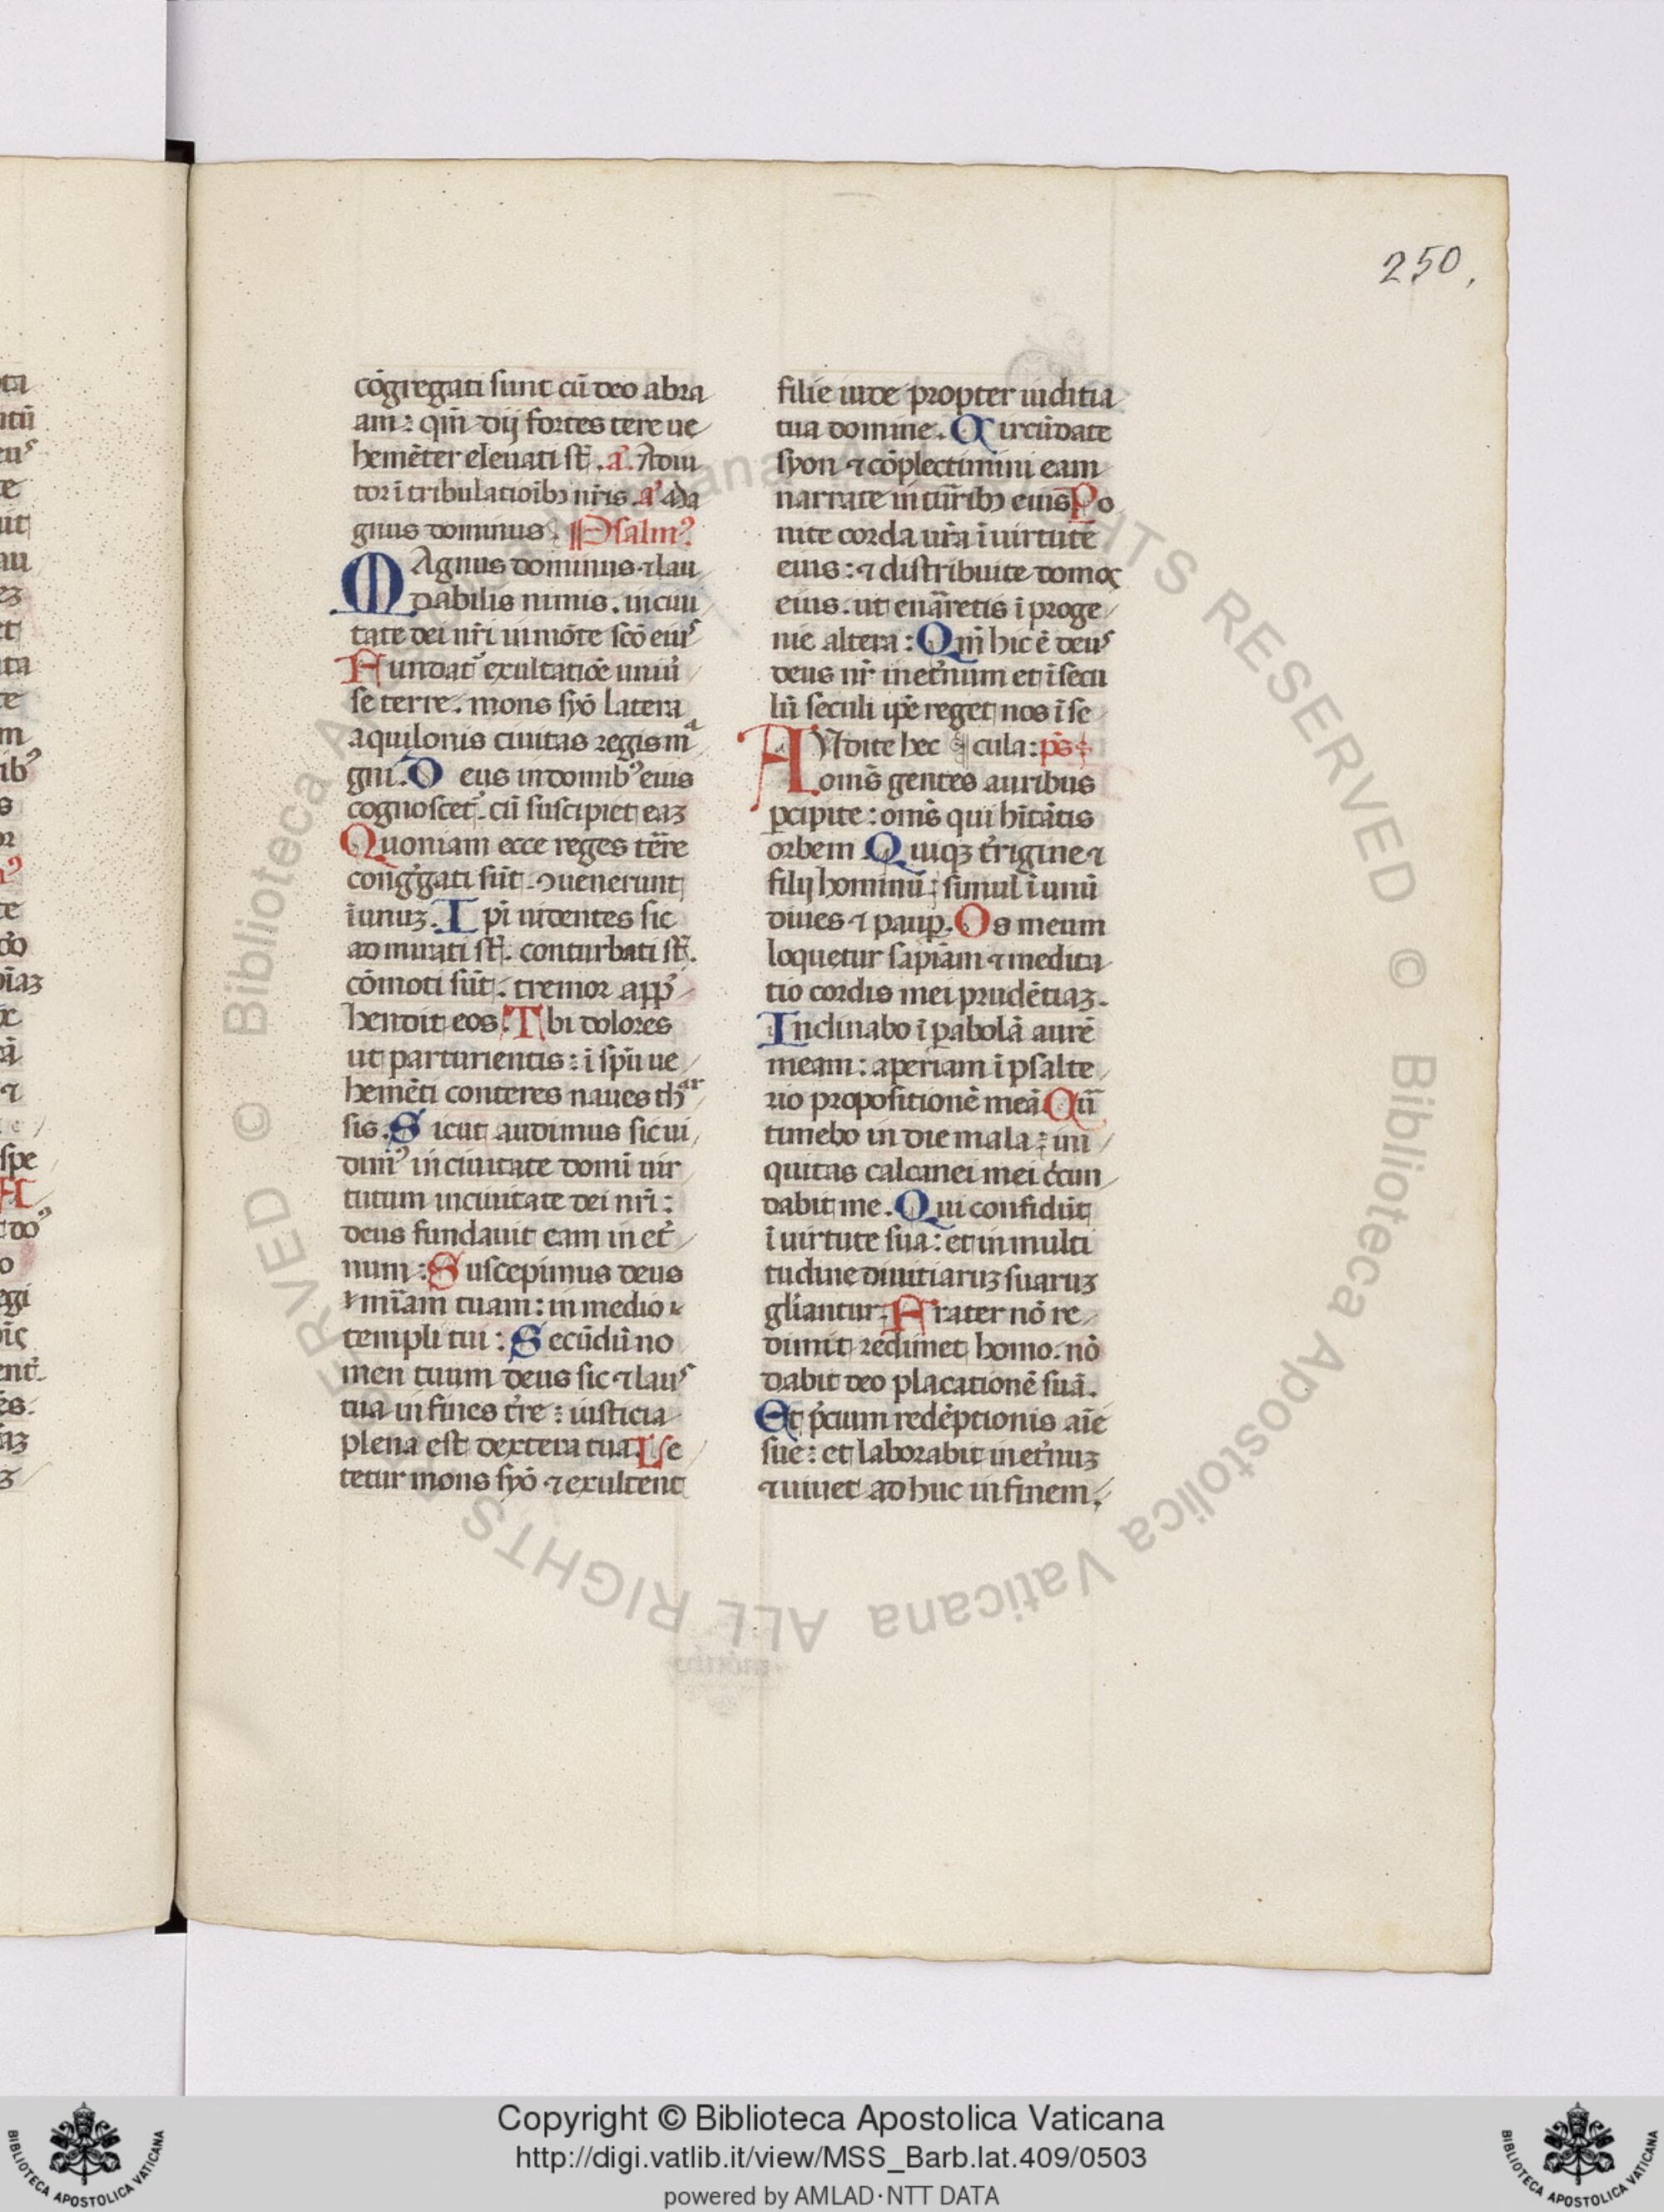 250,
cōgregati sunt cū deo abra
am: qm̄ dij fortes tere ve
hemēter elevati st̄. aͣ. Adiu
tor ī tribulatioībꝫ nr̄is. aͣ Ma
gnus dominus. Psalmꝰ
MAgnus dominus ⁊ lau
dabilis nimis. in ciui
tate dei nr̄i in mōte scō eiuˢ
Fundat᷑ exultatiōe uniu̾
se terre. mons syō latera
aquilonis ciuitas regis mᵃ
gni. Deus in domibꝰ eius
cognoscet᷑. cū suscipiet eaꝫ
Quoniam ecce reges terre
congͥgati sūt. ꝯuenerunt
ī unuꝫ. Ipi uidentes sic
admirati st̄. conturbati st̄.
cōmoti sūt. tremor app̄
hendit eos. Ibi dolores
ut parturientis: ī spū ve
hemēti conteres naues thᵃʳ
sis. Sicut audimus sic ui
dimꝰ in ciuitate domī uir
tutum in ciuitate dei nr̄i:
deus fundauit eam in et̾
num: Suscepimus deus
mīam tuam: in medio
templi tui: Secūdū no
men tuum deus sic ⁊ lauˢ
tua in fines t̾re: iusticia
plena est dextera tua. Le
tetur mons syō ⁊ exultent
filie iude propter iuditia
tua domine. Circūdate
syon ⁊ cōplectimini eam
narrate in turribꝫ eius Po
nite corda ur̄a ī uirtute
eius: ⁊ distribuite domoς
eius. ut enarretis ī proge
nie altera: Qm̄ hic ē deuˢ
deus nr̄ in et̾num et ī secu
lū seculi ipē reget nos ī se
AVdite hec ¶ cula: ps̄
om̄s gentes auribus
ꝑcipite: om̄s qui hītātis
orbem Quiqꝫ t̾rigine ⁊
filij hominū: simul ī unū
diues ⁊ paup̲. Os meum
loquetur sapīam ⁊ medita
tio cordis mei prudētiaꝫ.
Inclinabo ī ꝑabolā aurē
meam: aperiam ī psalte
rio propositionē meā Cū
timebo in die mala: ini
quitas calcanei mei c̄cun
dabit me. Qui confidūt
ī uirtute sua: et in multi
tudine diuitiaruꝫ suaruꝫ
glīantur. Frater nō re
dimit redimet homo. nō
dabit deo placationē suā.
Et p̄cium redēptionis aīe
sue: et laborabit in et̾nuꝫ
⁊ uiuet ad huc in finem.
Copyright © Biblioteca Apostolica Vaticana
http://digi.vatlib.it/view/MSS_Barb.lat.409/0503
powered by AMLAD·NTT DATA
BIBLIOTECA APOSTOLICA VATICANA
BIBLIOTECA APOSTOLICA VATICANA
© Biblioteca Apostolica Vaticana ALL RIGHTS RESERVED
© Biblioteca Apostolica Vaticana ALL RIGHTS RESERVED